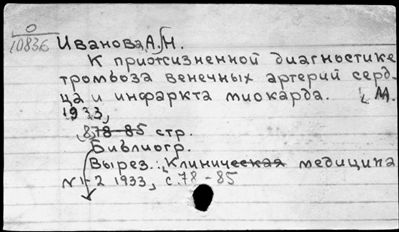 0
10836
Иванова, А. Н.
К прижизненной диагностике
тромбоза венечных артерий серд-
ца и инфаркта миокарда. М.
1933,
878-85 стр.
Библиогр.
Вырез.: Клиническая медицина
№1-2 1933, с. 78-85